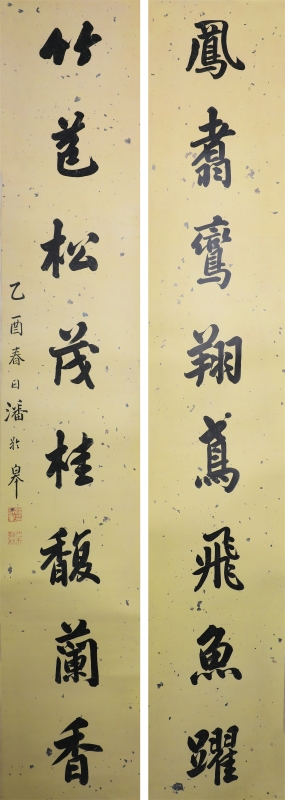 鳳翥鸞翔鳶飛魚躍
竹苞松茂桂馥蘭香
乙酉春日潘於皋